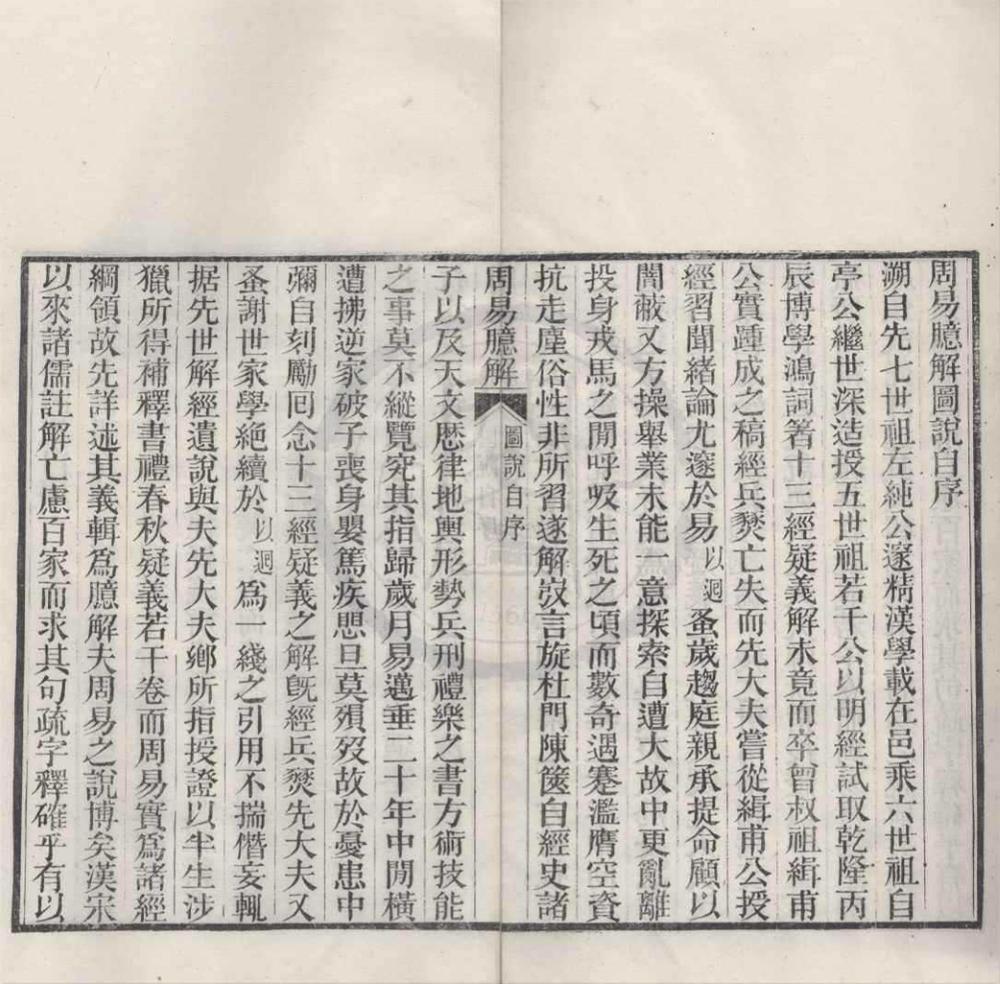 周易臆解圖說自序
溯自先七世祖左純公邃精漢學載在邑乘六世祖自
亭公繼世深造授五世祖若千公以明經試取乾隆丙
辰博學鴻詞箸十三經疑義解未竟而卒曾叔祖緝甫
公實踵成之稿經兵燹亡失而先大夫嘗從緝甫公授
經習聞緒論尤邃於易以迵蚤歲趨庭親承提命顧以
闇蔽又方操舉業未能一意探索自遭大故中更亂離
投身戎馬之閒呼吸生死之頃而數奇遇蹇濫膺空資
抗走塵俗性非所習遂解𢼛言旋杜門陳篋自經史諸
周易臆解
圖說自序
子以及天文厯律地輿形勢兵刑禮樂之書方術技能
之事莫不縱覽究其指歸歲月易邁垂二十年中閒橫
遭拂逆家破子喪身嬰篤疾愳旦莫殞歿故於憂患中
彌自刻勵囘念十三經疑義之解旣經兵燹先大夫又
蚤謝世家學絶續於以迵為一綫之引用不揣僭妄輒
据先世解經遺說與夫先大夫鄉所指授證以半生涉
獵所得補釋書禮春秋疑義若干卷而周易實為諸經
綱領故先詳述其義輯為臆解夫周易之說博矣漢宋
以來諸儒註解亡慮百家而求其句疏字釋確乎有以